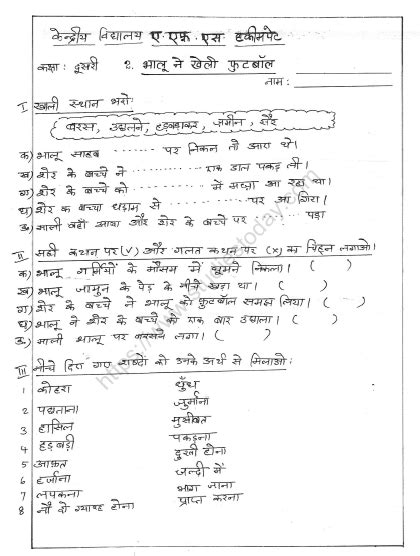 केन्द्रीय विद्यालय ए.एफ.एस. हकीमपेट
कक्षा: दूसरी 2. भालू ने खेली फुटबॉल
नाम:
I खाली स्थान भरो:
बरस, उछालने, हड़बड़ाकर, ज़मीन, सैर
क) भालू साहब ........ पर निकल तो आए थे।
ख) शेर के बच्चे ने ........ एक डाल पकड़ ली।
ग) शेर के बच्चे को ........ में मज़ा आ रहा था।
घ) शेर का बच्चा धड़ाम से ........ पर आ गिरा।
ङ) माली वहाँ आया और शेर के बच्चे पर ........ पड़ा
II सही कथन पर (√) और गलत कथन पर (×) का चिह्न लगाओ।
क) भालू गर्मियों के मौसम में घूमने निकला। ( )
ख) भालू जामुन के पेड़ के नीचे खड़ा था। ( )
ग) शेर के बच्चे ने भालू को फुटबॉल समझ लिया। ( )
घ) भालू ने शेर के बच्चे को एक बार उछाला। ( )
ङ) माली भालू पर बरसने लगा। ( )
III नीचे दिए गए शब्दों को उनके अर्थ से मिलाओ:
1 कोहरा धुँध
2 पछताना जुर्माना
3 हासिल मुसीबत
4 हड़बड़ी पकड़ना
5 आफ़त दुखी होना
6 हर्जाना जल्दी में
7 लपकना भाग जाना
8 नौ दो ग्यारह होना प्राप्त करना
https://www.studiestoday.com